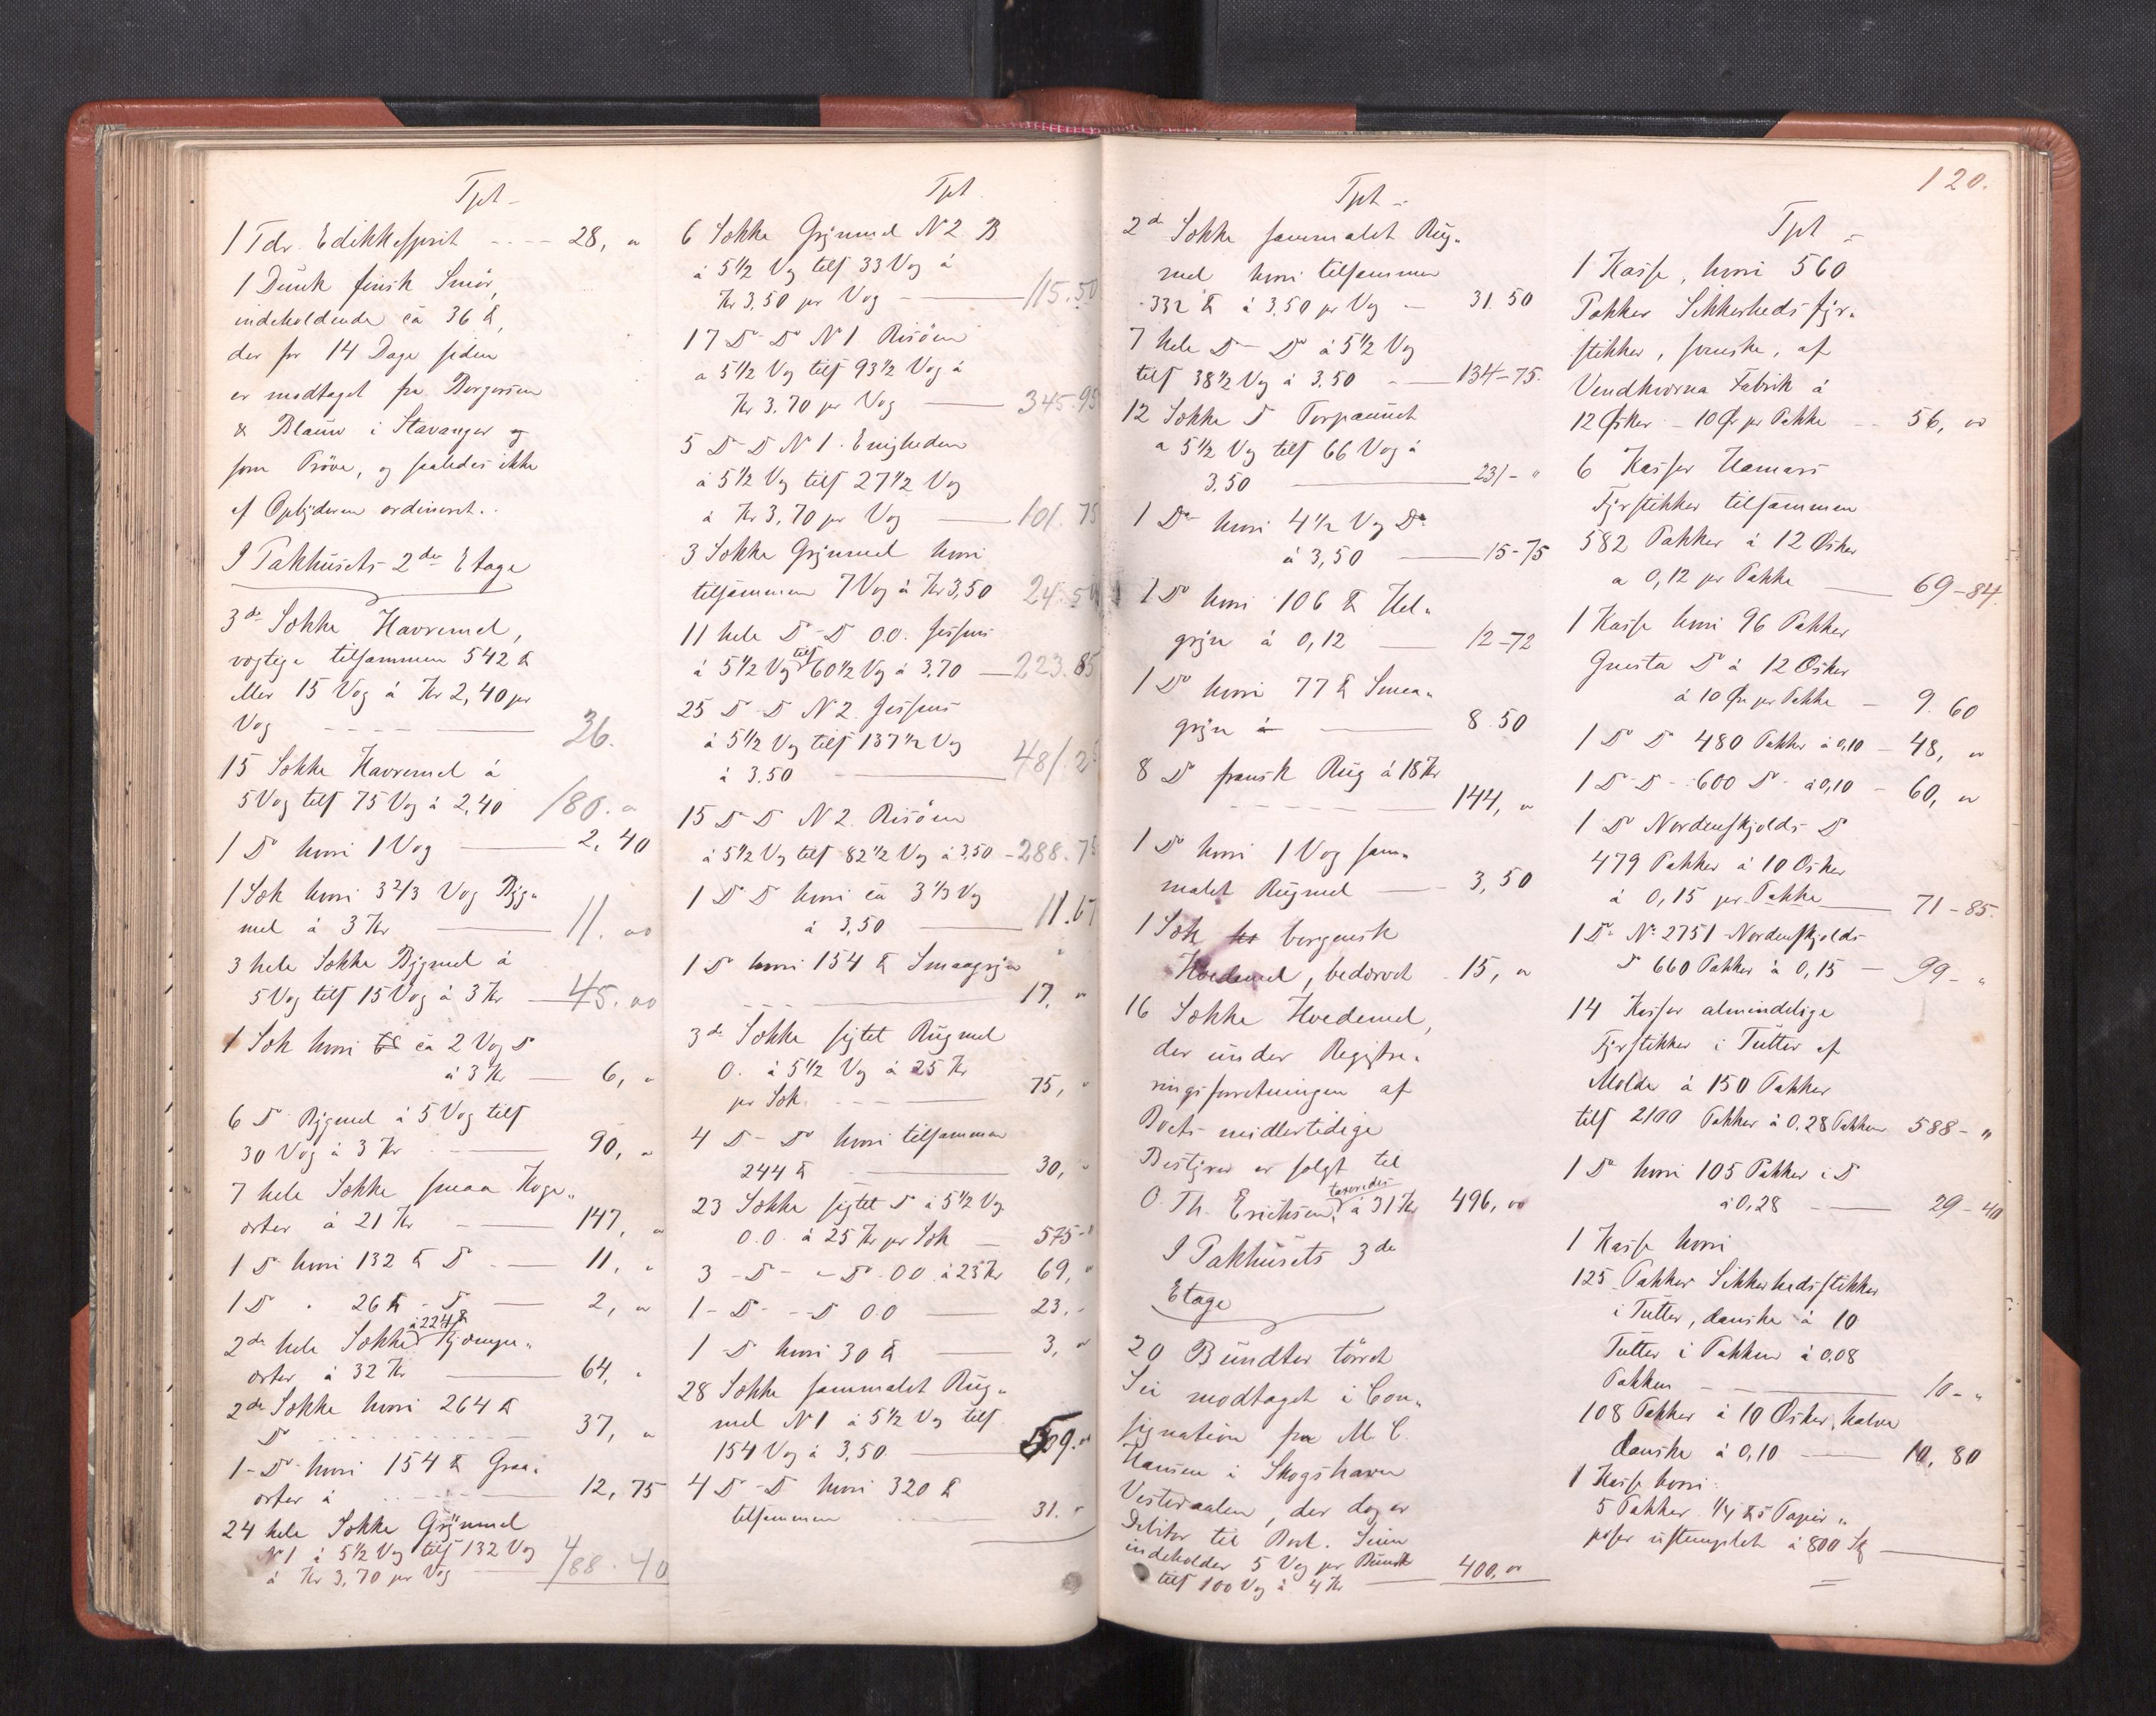 Tpt
1 Tdr. Edikkesprit - - - - 28, "
1 Dunk finsk Smör,
indeholdende ca 36 ℔,
der for 14 Dage siden
er modtaget fra Borgersen
& Blauw i Stavanger og
som Pröve, og saaledes ikke
af Opbyderen ordineret.
I Pakhusets 2den Etage
3de Sække Havremel,
vægtige tilsammen 542 ℔
eller 15 Vog á Kr 2,40 pr
Vog - - - - 36.
15 Sække Havremel á
5 Vog tils 75 Vog á 2,40 180. "
1 Do hvori 1 Vog 2,40
1 Sæk hvori 3 2/3 Vog Byg-
mel á 3 Kr 11. 00
3 hele Sække Bygmel á
5 Vog tils 15 Vog á 3 Kr 45.00
1 Sæk hvori ca 2 Vog Do
á 3 Kr 6, "
6 Do Bygmel á 5 Vog tils
30 Vog á 3 Kr 90, "
7 hele Sække smaa Koge-
erter á 21 Kr 147, "
1 Do hvori 132 ℔ Do 11, "
1 Do " 26 ℔ - Do 2, "
2de hele Sække á 224 ℔ Kjæmpe-
erter á 32 Kr 64, "
2de Sække hvori 264 ℔
Do 37, "
1 - Do hvori 154 ℔ Graa-
erter á 12,75
24 hele Sække Grynmel
N 1 á 5 1/2 Vog tils 132 Vog
á Kr 3,70 pr Vog 488.40
Tpt
6 Sække Grynmel N 2 B
á 5 1/2 Vog tils 33 Vog á
Kr 3,50 pr Vog 115.50
17 Do - Do N 1 Risöen
a 5 1/2 Vog tils 93 1/2 Vog á
Kr 3,70 pr Vog 345.95
5 Do - Do N 1. Enigheden
á 5 1/2 Vog tils 27 1/2 Vog
á Kr 3,70 pr Vog 101.75
3 Sække Grynmel hvori
tilsammen 7 Vog á Kr 3,50 24.50
11 hele Do - Do 0.0. Jessens
á 5 1/2 Vog tils 60 1/2 Vog á 3,70 223.85
25 Do - Do N 2. Jessens
á 5 1/2 Vog tils 137 1/2 Vog
á 3.50 481.25
15 Do - Do N 2. Risöen
á 5 1/2 Vog tils 82 1/2 Vog á 3,50 - 288.75
1 Do Do hvori ca 3 1/3 Vog
á 3,50 11.67
1 Do hvori 154 ℔ Smaagryn
17, "
3de Sække sigtet Rugmel
0. á 5 1/2 Vog á 25 Kr
pr Sæk. 75, "
4 Do - Do hvori tilsammen
244 ℔ 30, "
23 Sække sigtet Do á 5 1/2 Vog
0.0. á 25 Kr pr Sæk 575 - "
3 - Do - - Do 00 á 23 Kr 69, "
1 - Do - - Do 0.0 23. -
1 Do hvori 30 ℔ 3, "
28 Sække sammalet Rug-
mel N 1 á 5 1/2 Vog tils
154 Vog á 3,50 539. "
4 Do - Do hvori 320 ℔
tilsammen 31. "
Tpt
2de Sække sammalet Rug-
mel hvori tilsammen
332 ℔ á 3,50 pr Vog 31.50
7 hele Do - Do á 5 1/2 Vog
tils 38 1/2 Vog á 3.50 134-75.
12 Sække Do Torpaunet
a 5 1/2 Vog tils 66 Vog á
3,50 231 - "
1 Do hvori 4 1/2 Vog Do
á 3,50 15-75
1 Do hvori 106 ℔ Hel-
gryn á 0,12 12-72
1 Do hvori 77 ℔ Smaa-
gryn á 8.50
8 Do fransk Rug á 18 Kr
144, "
1 Do hvori 1 Vog sam-
malet Rugmel 3,50
1 Sæk bergensk
Hvedemel, bedærvet 15, "
16 Sække Hvedemel,
der under Registre-
ringsforretningen af
Boets midlertidige
Bestyrer er solgt til
O. Th. Erichsen, taxeredes á 31 Kr 496, 00
I Pakhusets 3de
Etage
20 Bundter törret
Sei modtaget i Con-
signation fra M. C.
Hansen i Skogshavn
Vesteraalen, der dog er
Debitor til Boet. Seien
indeholder 5 Vog pr Bundt
tils 100 Vog á 4 Kr 400, 00
120.
Tpt
1 Kasse, hvori 560
Pakker Sikkerheds fyr-
stikker, svenske, af
Vendkværna Fabrik á
12 Æsker - 10 Ør pr Pakke 56, 00
6 Kasser Hamars
Fyrstikker tilsammen
582 Pakker á 12 Æsker
a 0,12 pr Pakke 69-84.
1 Kasse hvori 96 Pakker
Gnesta Do á 12 Æsker
á 10 Ør pr Pakke 9.60
1 Do Do 480 Pakker á 0,10 48, "
1 Do - Do - 600 Do - á 0,10 60, "
1 Do Nordenskjolds Do
479 Pakker á 10 Æsker
á 0,15 pr Pakke 71-85.
1 Do No 2751 Nordenskjolds
Do 660 Pakker á 0,15 99 - "
14 Kasser almindelige
Fyrstikker i Tutter af
Molde á 150 Pakker
tils 2100 Pakker á 0.28 Pakken 588 - "
1 Do hvori 105 Pakker i Do
á 0,28 29-40
1 Kasse hvori
125 Pakker Sikkerhedsstikker
i Tutter, danske á 10
Tutter i Pakken á 0,08
Pakken 10 - "
108 Pakker á 10 Æsker, halve
danske á 0,10 10,80
1 Kasse hvori
5 Pakker 1/4 ℔s Papir-
poser ustemplet á 800 Stk